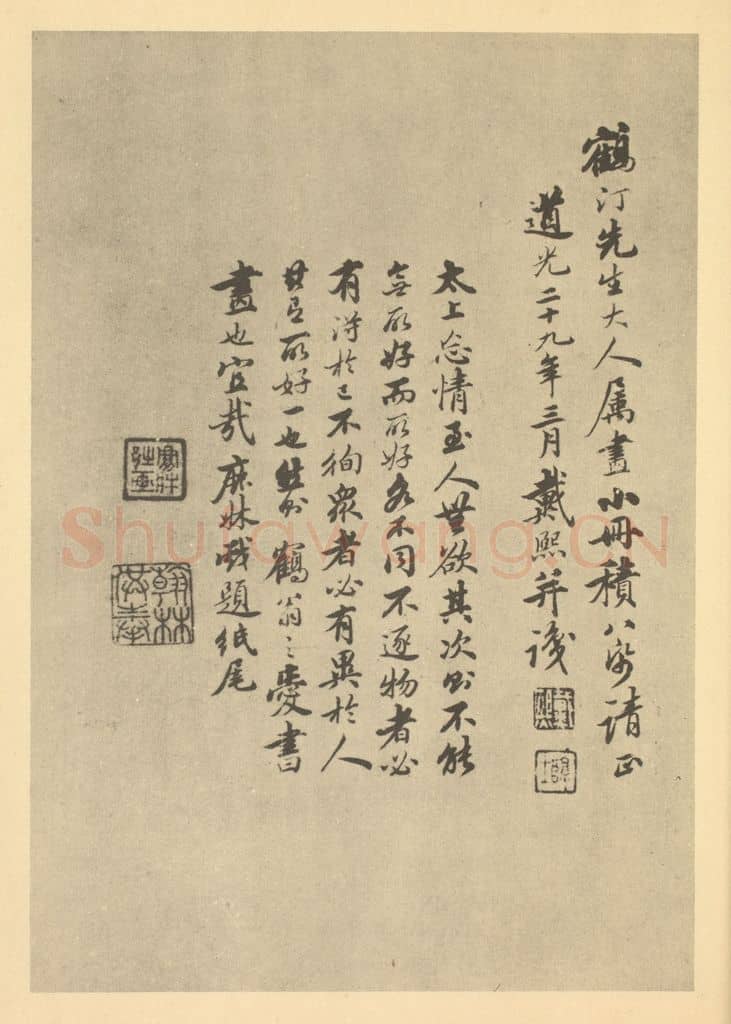 鶴汀先生大人属畫小冊積八㡧請正
道光二十九年三月戴熙并識
太上忘情至人無欲其次則不能
無所好而所好各不同不逐物者必
有得於己不徇衆者必有異於人
其有所好一也然則鶴翁之愛書
畫也宜哉 床婌戲題紙尾
翰林供奉
Shufawang.CN